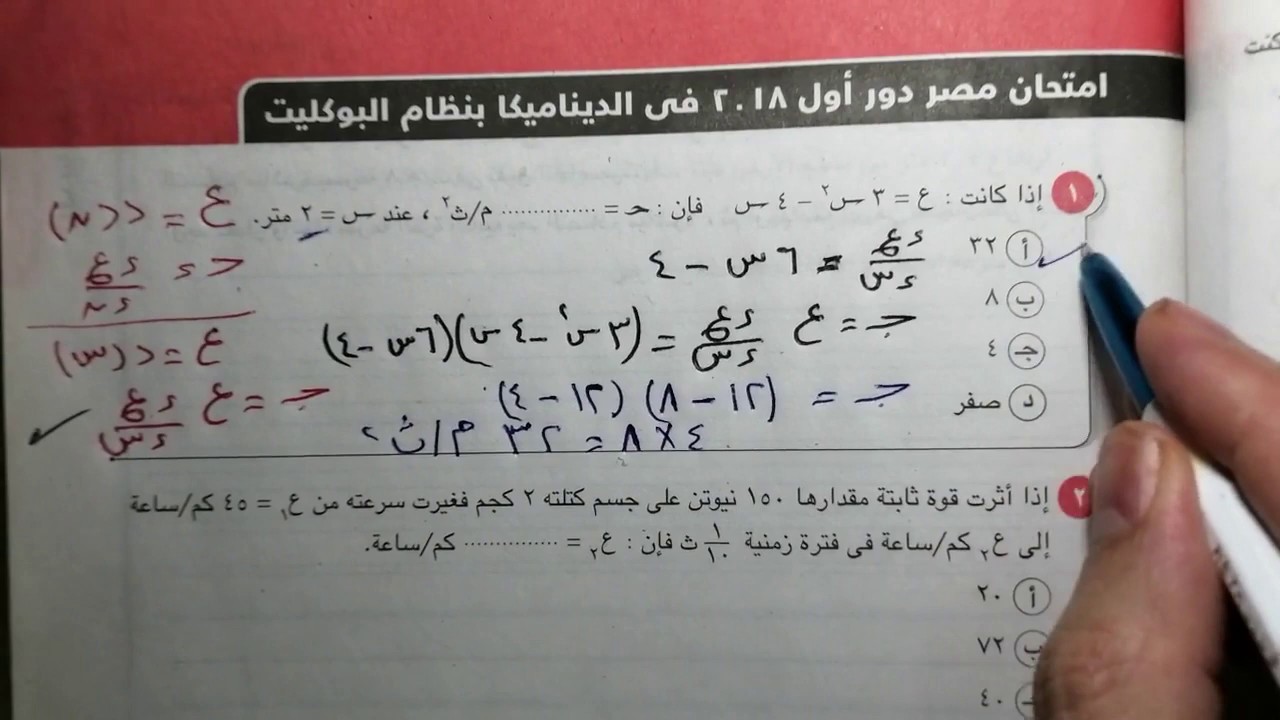 امتحان مصر دور أول ٢٠١٨ فى الديناميكا بنظام البوكليت
١ إذا كانت : ع = ٣ س٢ – ٤ س فإن : حـ = .............. م/ث٢ ، عند س = ٢ متر.
أ ٣٢
ب ٨
جـ ٤
د صفر
ءع/ءس = ٦س - ٤
جـ = ع ءع/ءس = (٣س٢ - ٤س)(٦س - ٤)
جـ = (١٢ - ٨) (١٢ - ٤)
٤ × ٨ = ٣٢ م/ث٢
ع = د(ن)
جـ = ءع/ءن
ع = د(س)
جـ = ع ءع/ءس
٢ إذا أثرت قوة ثابتة مقدارها ١٥٠ نيوتن على جسم كتلته ٢ كجم فغيرت سرعته من ع١ = ٤٥ كم/ساعة
إلى ع٢ كم/ساعة فى فترة زمنية ١/١٠ ث فإن : ع٢ = .............. كم/ساعة.
أ ٢٠
ب ٧٢
جـ ٤٠
كنت